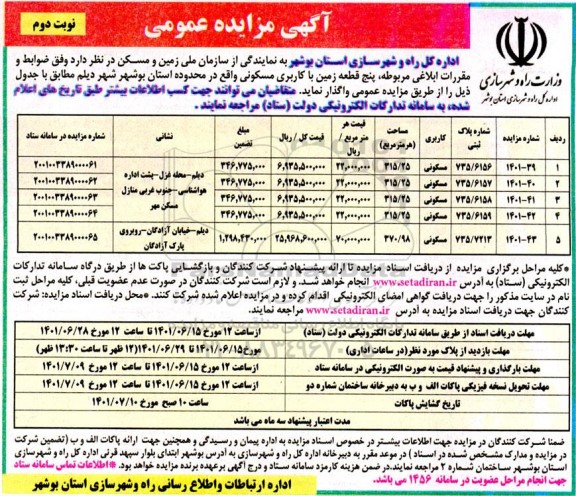 آگهی مزایده عمومی
نوبت دوم
وزارت راه و شهرسازی
اداره کل راه و شهرسازی استان بوشهر
اداره کل راه و شهرسازی استان بوشهر به نمایندگی از سازمان ملی زمین و مسکن در نظر دارد وفق ضوابط و
مقررات ابلاغی مربوطه، پنج قطعه زمین با کاربری مسکونی واقع در محدوده استان بوشهر شهر دیلم مطابق با جدول
ذیل را از طریق مزایده عمومی واگذار نماید. متقاضیان می توانند جهت کسب اطلاعات بیشتر طبق تاریخ های اعلام
شده، به سامانه تدارکات الکترونیکی دولت (ستاد) مراجعه نمایند.
ردیف شماره مزایده شماره پلاک ثبتی کاربری مساحت (هر مترمربع) قیمت هر متر مربع / ریال قیمت کل / ریال مبلغ تضمین نشانی شماره مزایده در سامانه ستاد
۱ ۱۴۰۱-۳۹ ۷۳۵/۶۱۵۶ مسکونی ۳۱۵/۲۵ ۲۲,۰۰۰,۰۰۰ ۶,۹۳۵,۵۰۰,۰۰۰ ۳۴۶,۷۷۵,۰۰۰ ۲۰۰۱۰۰۳۳۸۹۰۰۰۰۶۱
۲ ۱۴۰۱-۴۰ ۷۳۵/۶۱۵۷ مسکونی ۳۱۵/۲۵ ۲۲,۰۰۰,۰۰۰ ۶,۹۳۵,۵۰۰,۰۰۰ ۳۴۶,۷۷۵,۰۰۰ ۲۰۰۱۰۰۳۳۸۹۰۰۰۰۶۲
۳ ۱۴۰۱-۴۱ ۷۳۵/۶۱۵۸ مسکونی ۳۱۵/۲۵ ۲۲,۰۰۰,۰۰۰ ۶,۹۳۵,۵۰۰,۰۰۰ ۳۴۶,۷۷۵,۰۰۰ ۲۰۰۱۰۰۳۳۸۹۰۰۰۰۶۳
۴ ۱۴۰۱-۴۲ ۷۳۵/۶۱۵۹ مسکونی ۳۱۵/۲۵ ۲۲,۰۰۰,۰۰۰ ۶,۹۳۵,۵۰۰,۰۰۰ ۳۴۶,۷۷۵,۰۰۰ ۲۰۰۱۰۰۳۳۸۹۰۰۰۰۶۴
دیلم-محله غزل-پشت اداره
هواشناسی-جنوب غربی منازل
مسکن مهر
۵ ۱۴۰۱-۴۳ ۷۳۵/۷۲۱۳ مسکونی ۳۷۰/۹۸ ۷۰,۰۰۰,۰۰۰ ۲۵,۹۶۸,۶۰۰,۰۰۰ ۱,۲۹۸,۴۳۰,۰۰۰ دیلم-خیابان آزادگان-روبروی پارک آزادگان ۲۰۰۱۰۰۳۳۸۹۰۰۰۰۶۵
*کلیه مراحل برگزاری مزایده از دریافت اسناد مزایده تا ارائه پیشنهاد شرکت کنندگان و بازگشایی پاکت ها از طریق درگاه سامانه تدارکات
الکترونیکی (ستاد) به آدرس www.setadiran.ir انجام خواهد شد. و لازم است شرکت کنندگان در صورت عدم عضویت قبلی، کلیه مراحل ثبت
نام در سایت مذکور را جهت دریافت گواهی امضای الکترونیکی اقدام کرده و در مزایده اعلام شده شرکت کنند. *محل دریافت اسناد مزایده: شرکت
کنندگان جهت دریافت اسناد مزایده به آدرس www.setadiran.ir مراجعه نمایند.
مهلت دریافت اسناد از طریق سامانه تدارکات الکترونیکی دولت (ستاد) ازساعت ۱۲ مورخ ۱۴۰۱/۰۶/۱۵ تا ساعت ۱۲ مورخ ۱۴۰۱/۰۶/۲۸
مهلت بازدید از پلاک مورد نظر(در ساعات اداری) مورخ ۱۴۰۱/۰۶/۱۵ تا ۱۴۰۱/۰۶/۲۹ (۱۲ ظهر تا ساعت ۱۳:۳۰ ظهر)
مهلت بارگذاری و پیشنهاد قیمت به صورت الکترونیکی در سامانه ستاد ازساعت ۱۲ مورخ ۱۴۰۱/۰۶/۱۵ تا ساعت ۱۲ مورخ ۱۴۰۱/۷/۰۹
مهلت تحویل نسخه فیزیکی پاکات الف و ب به دبیرخانه ساختمان شماره دو ازساعت ۱۲ مورخ ۱۴۰۱/۰۶/۱۵ تا ساعت ۱۲ مورخ ۱۴۰۱/۷/۰۹
تاریخ گشایش پاکات ساعت ۱۰ صبح مورخ ۱۴۰۱/۰۷/۱۰
مدت اعتبار پیشنهاد سه ماه می باشد
ضمنا شرکت کنندگان در مزایده جهت اطلاعات بیشتر در خصوص اسناد مزایده به اداره پیمان و رسیدگی و همچنین جهت ارائه پاکات الف و ب (تضمین شرکت
در مزایده و مدارک مشخص شده در اسناد) در موعد مقرر به دبیرخانه اداره کل راه و شهرسازی به آدرس بوشهر ابتدای بلوار سپهبد قرنی اداره کل راه و شهرسازی
استان بوشهر ساختمان شماره ۲ مراجعه نمایند.در ضمن هزینه کارمزد سامانه ستاد و درج آگهی برعهده برنده مزایده خواهد بود. *اطلاعات تماس سامانه ستاد
جهت انجام مراحل عضویت در سامانه ۱۴۵۶ می باشد.
اداره ارتباطات واطلاع رسانی راه وشهرسازی استان بوشهر